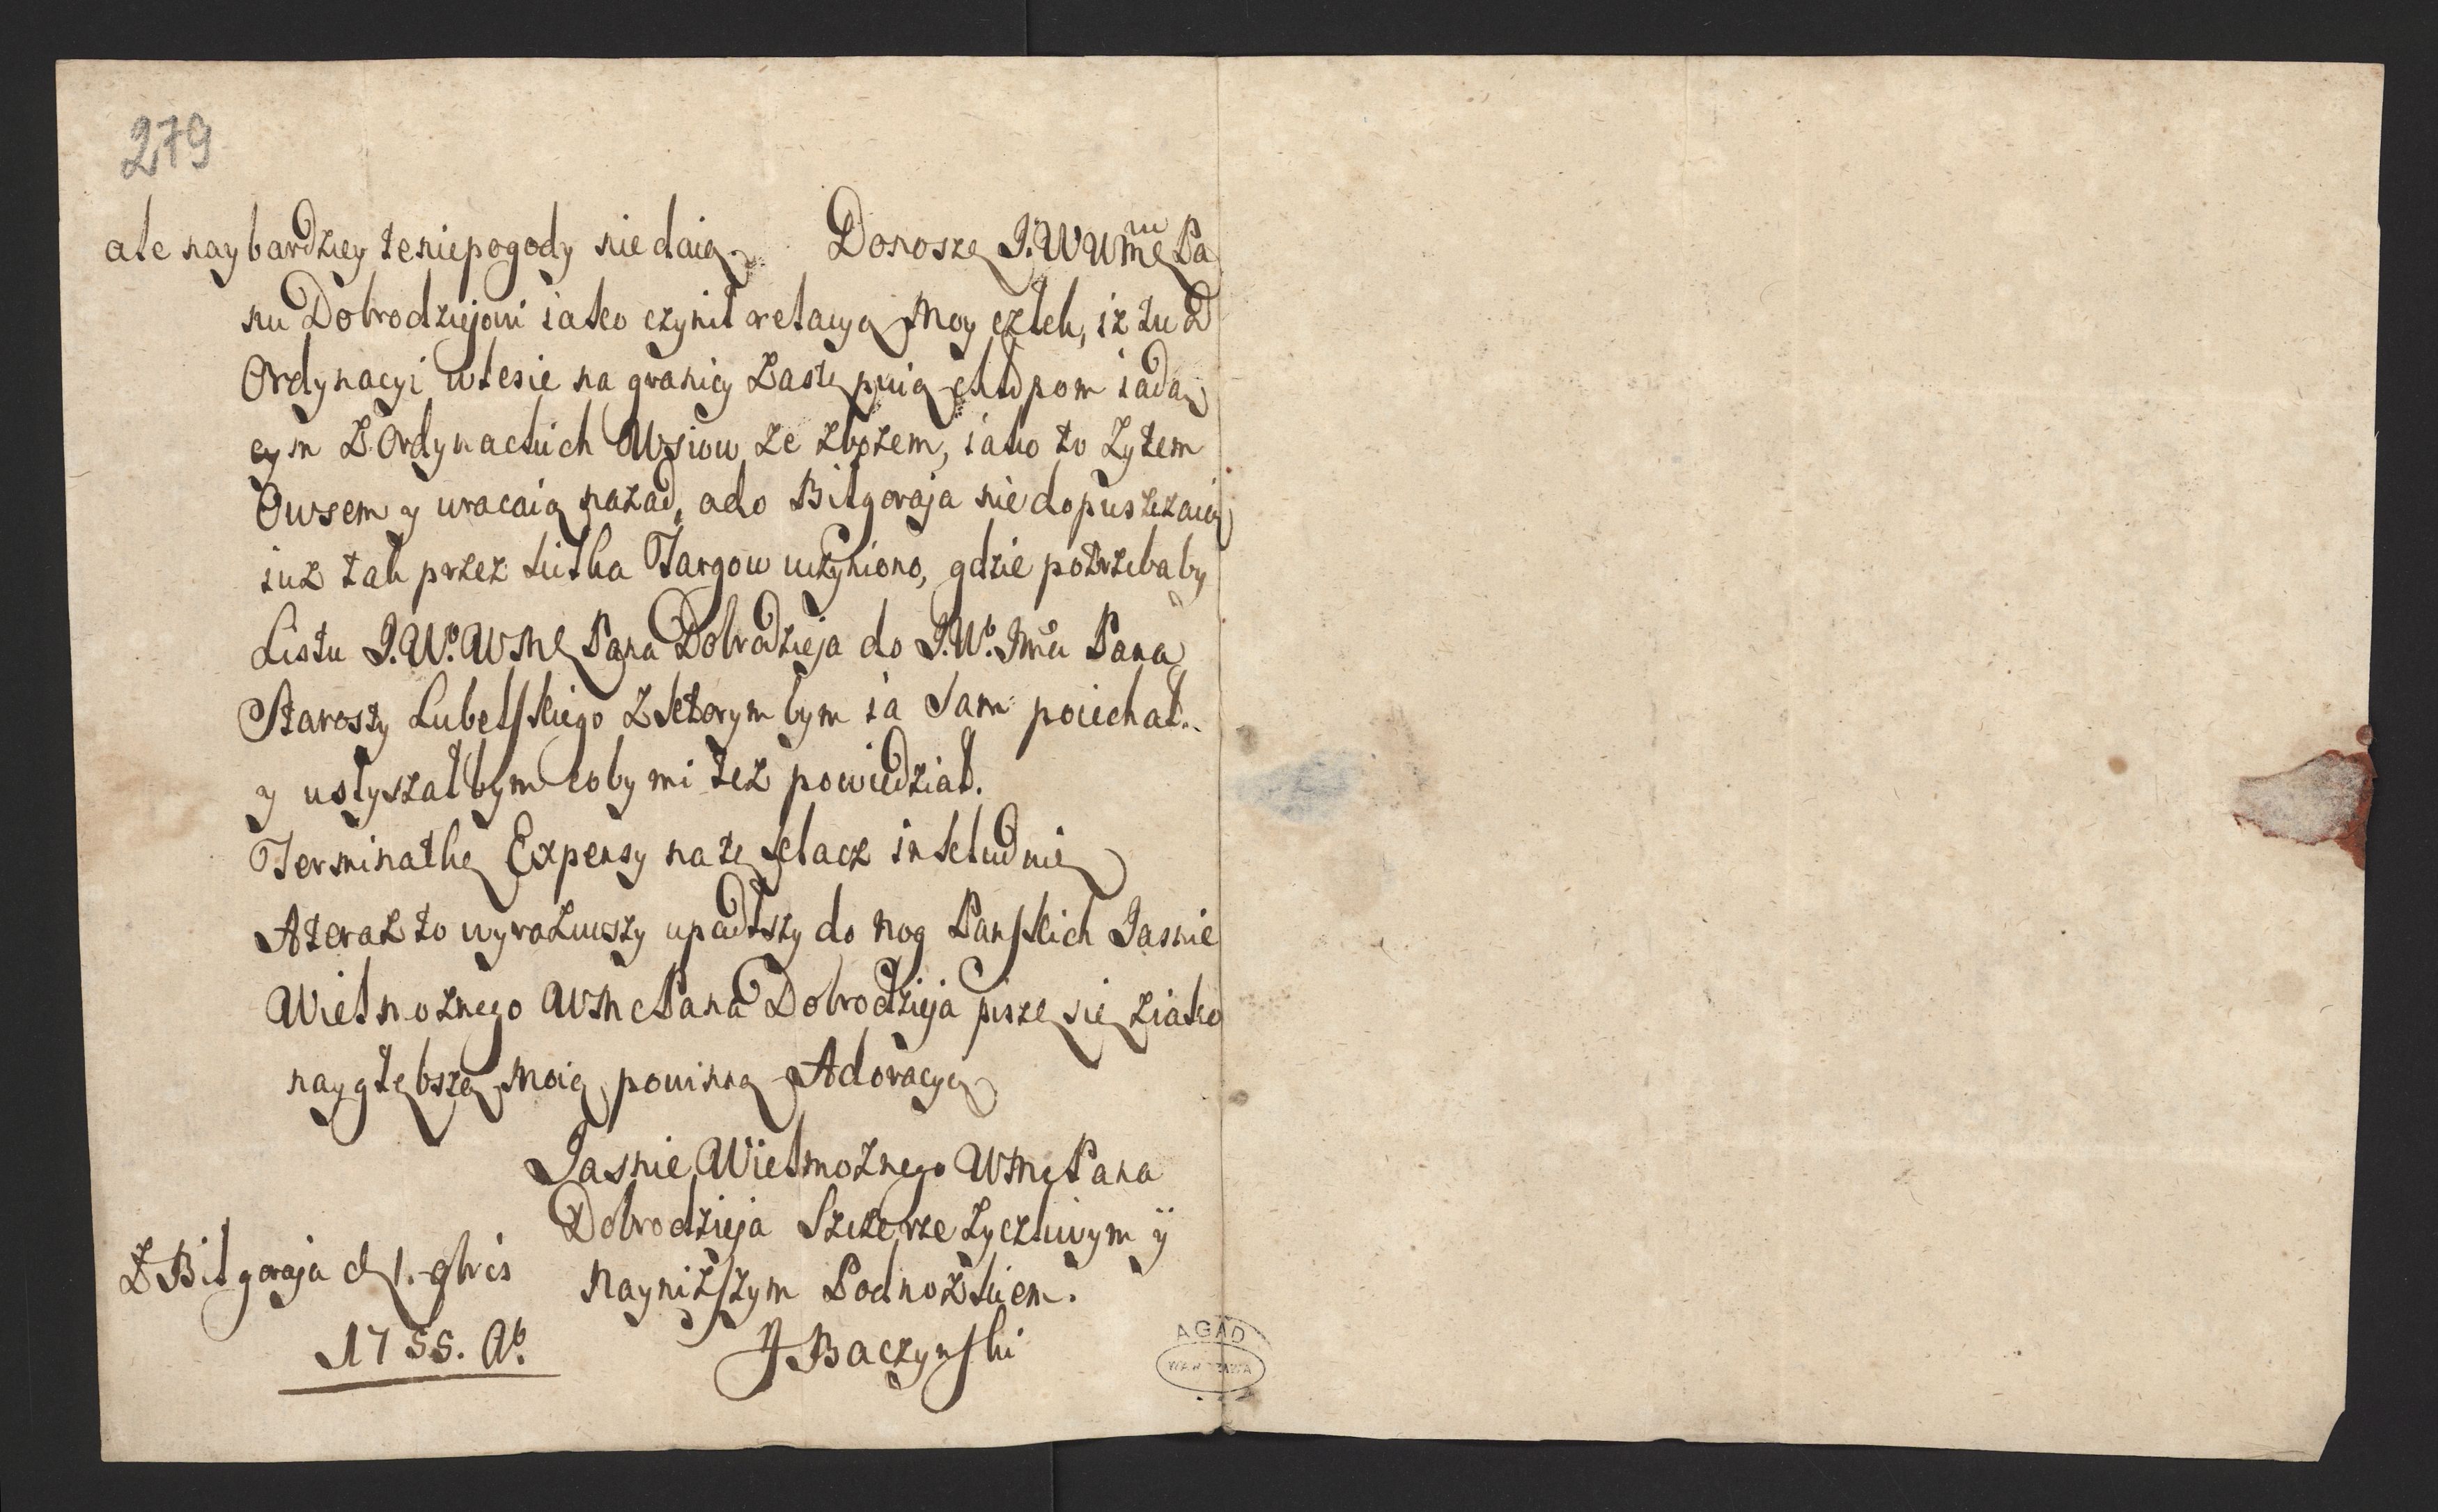 279
ale naybardziey te niepogody nie daią. Donoszę J. WWMę Pa
nu Dobrodziejowi iako czynił relacyą Moy człek, iz tu w
Ordynacyi w lesie na granicy Zastępuią chłopom iadą
cym Z Ordynackich Wsiow ze zbozem, iako to Zytem
Owsem y wracaią nazad, ado Biłgoraja niedopuszczaią
iuz tak przez kilka Targow uczyniono, gdzie potrzebaby
Listu J. Wo. WMę Pana Dobrodzieja do J. Wo. Jmci Pana
Starosty Lubelskiego z ktorym bym ia Sam poiechał.
y usłyszałbym coby mi tez powiedział.
Terminatkę Expensy na tę klacz inkludnię
A teraz to wyraziwszy upadłszy do nog Panskich Jasnie
Wielmoznego WMc Pana Dobrodzieja piszę się ziako
naygłębszą Moią powinną Adoracyą
Jasnie Wielmoznego WMę Pana
Dobrodzieja Szczerze zyczliwym ÿ
Nayniższym Podnozkiem.
Z Biłgoraja d 1. 9bris
1755. Ao.
J Baczynski
AGAD
WARSZAWA